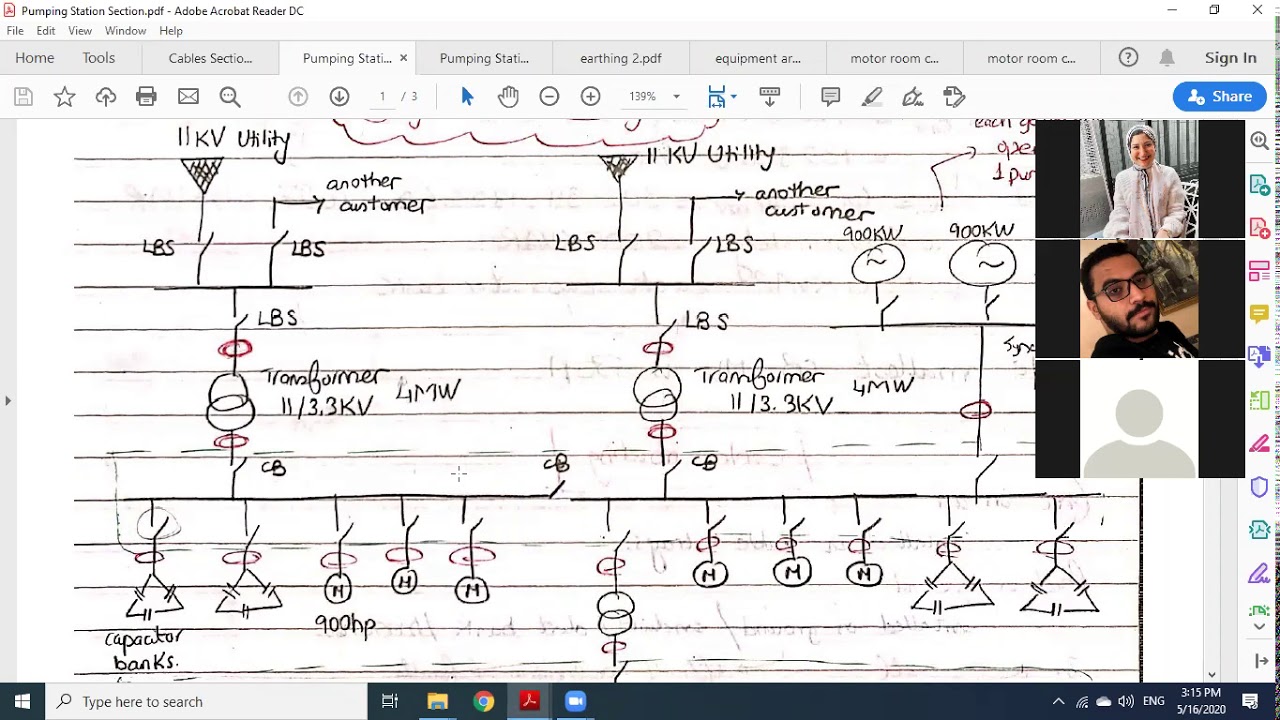 Pumping Station Section.pdf - Adobe Acrobat Reader DC
File Edit View Window Help
Home Tools Cables Sectio... Pumping Stati... × Pumping Stati... earthing 2.pdf equipment ar... motor room c... motor room c... Sign In
1 / 3 139% Share
11 KV Utility
11 KV Utility
another
customer
another
customer
LBS LBS LBS LBS
900KW 900KW
LBS LBS
Transformer 4MW
11/3.3KV
Transformer 4MW
11/3.3KV
CB CB CB
M M M M M M
900hp
capacitor
banks.
Type here to search
ENG 3:15 PM
5/16/2020